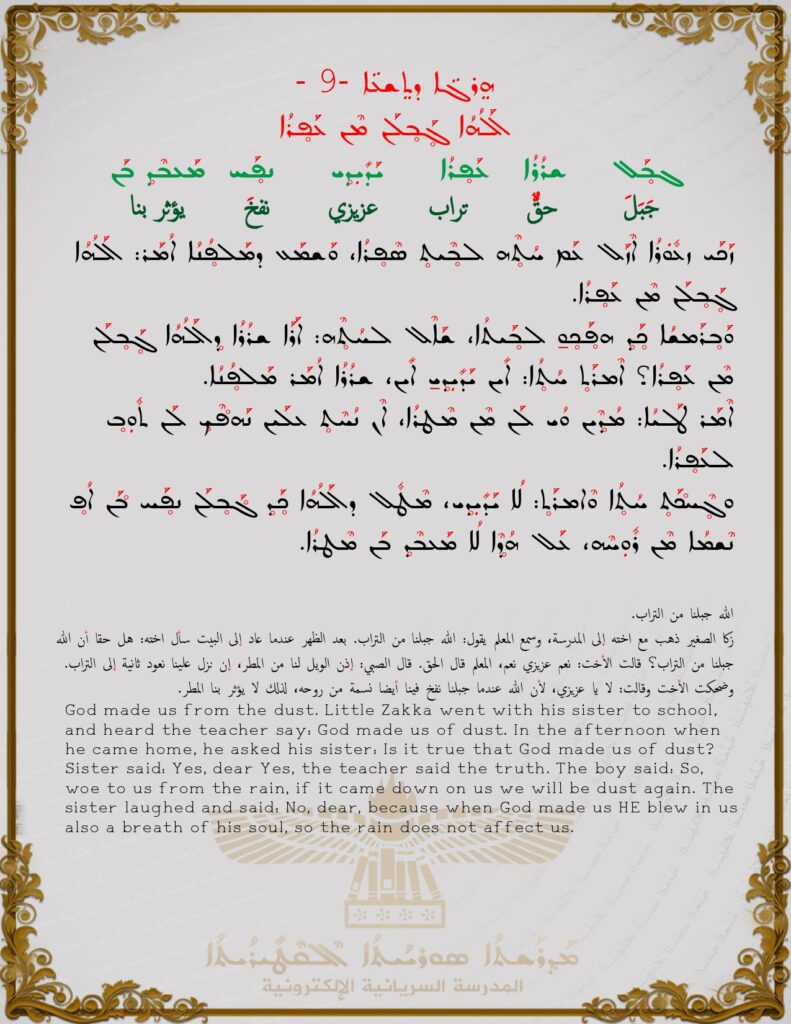 ܗܶܪ̈ܓܶܐ ܕܬܶܫܥܳܐ -9 -
ܐܰܠܳܗܳܐ ܓܰܒܠܰܢ ܡܶܢ ܥܰܦܪܳܐ
ܓܒܰܠ ܫܪܳܪܳܐ ܥܰܦܪܳܐ ܢܦܰܚ ܡܰܥܒܶܕ ܒܰܢ
جَبَلَ حقٌّ تراب عزيزي نفخَ يؤثر بنا
ܙܰܟܰܝ ܙܥܽܘܪܳܐ ܐܶܙܰܠ ܥܰܡ ܚܳܬܶܗ ܠܒܶܝܬ ܣܶܦܪܳܐ، ܘܰܫܡܰܥ ܕܡܰܠܦܳܢܳܐ ܐܳܡܰܪ: ܐܰܠܳܗܳܐ
ܓܰܒܠܰܢ ܡܶܢ ܥܰܦܪܳܐ.
ܘܰܒܪܰܡܫܳܐ ܟܰܕ ܗܦܰܟ ܠܒܰܝܬܳܐ، ܫܰܐܶܠ ܠܚܳܬܶܗ: ܐܰܪܳܐ ܫܪܳܪܳܐ ܕܰܐܠܳܗܳܐ ܓܰܒܠܰܢ
ܡܶܢ ܥܰܦܪܳܐ؟ ܐܶܡܪܰܬ ܚܳܬܳܐ: ܐܺܝܢ ܐܺܝܢ، ܫܪܳܪܳܐ ܐܳܡܰܪ ܡܰܠܦܳܢܳܐ.
ܐܶܡܰܪ ܛܰܠܝܳܐ: ܡܳܕܶܝܢ ܘܳܝ ܠܰܢ ܡܶܢ ܡܶܛܪܳܐ، ܐܶܢ ܢܳܚܶܬ ܥܠܰܝܢ ܢܶܗܦܶܟ ܠܰܢ ܬܽܘܒ
ܠܥܰܦܪܳܐ.
ܘܓܶܚܟܰܬ ܚܳܬܳܐ ܘܶܐܡܪܰܬ: ܠܳܐ ، ܡܶܛܽܠ ܕܰܐܠܳܗܳܐ ܟܰܕ ܓܰܒܠܰܢ ܢܦܰܚ ܒܰܢ ܐܳܦ
ܢܫܰܡܳܐ ܡܶܢ ܪܽܘܚܶܗ، ܥܰܠ ܗܳܕܶܐ ܠܳܐ ܡܰܥܒܶܕ ܒܰܢ ܡܶܛܪܳܐ.
الله جبلنا من التراب.
زكا الصغير ذهب مع اخته إلى المدرسة، وسمع المعلم يقول: الله جبلنا من التراب. بعد الظهر عندما عاد إلى البيت سأل اخته: هل حقا أن الله
جبلنا من التراب؟ قالت الأخت: نعم عزيزي نعم، المعلم قال الحق. قال الصبي: إذن الويل لنا من المطر، إن نزل علينا نعود ثانية إلى التراب.
وضحكت الأخت وقالت: لا يا عزيزي، لأن الله عندما جبلنا نفخ فينا أيضا نسمة من روحه، لذلك لا يؤثر بنا المطر.
God made us from the dust. Little Zakka went with his sister to school,
and heard the teacher say: God made us of dust. In the afternoon when
he came home, he asked his sister: Is it true that God made us of dust?
Sister said: Yes, dear Yes, the teacher said the truth. The boy said: So,
woe to us from the rain, if it came down on us we will be dust again. The
sister laughed and said: No, dear, because when God made us HE blew in us
also a breath of his soul, so the rain does not affect us.
المدرسة السريانية الإلكترونية